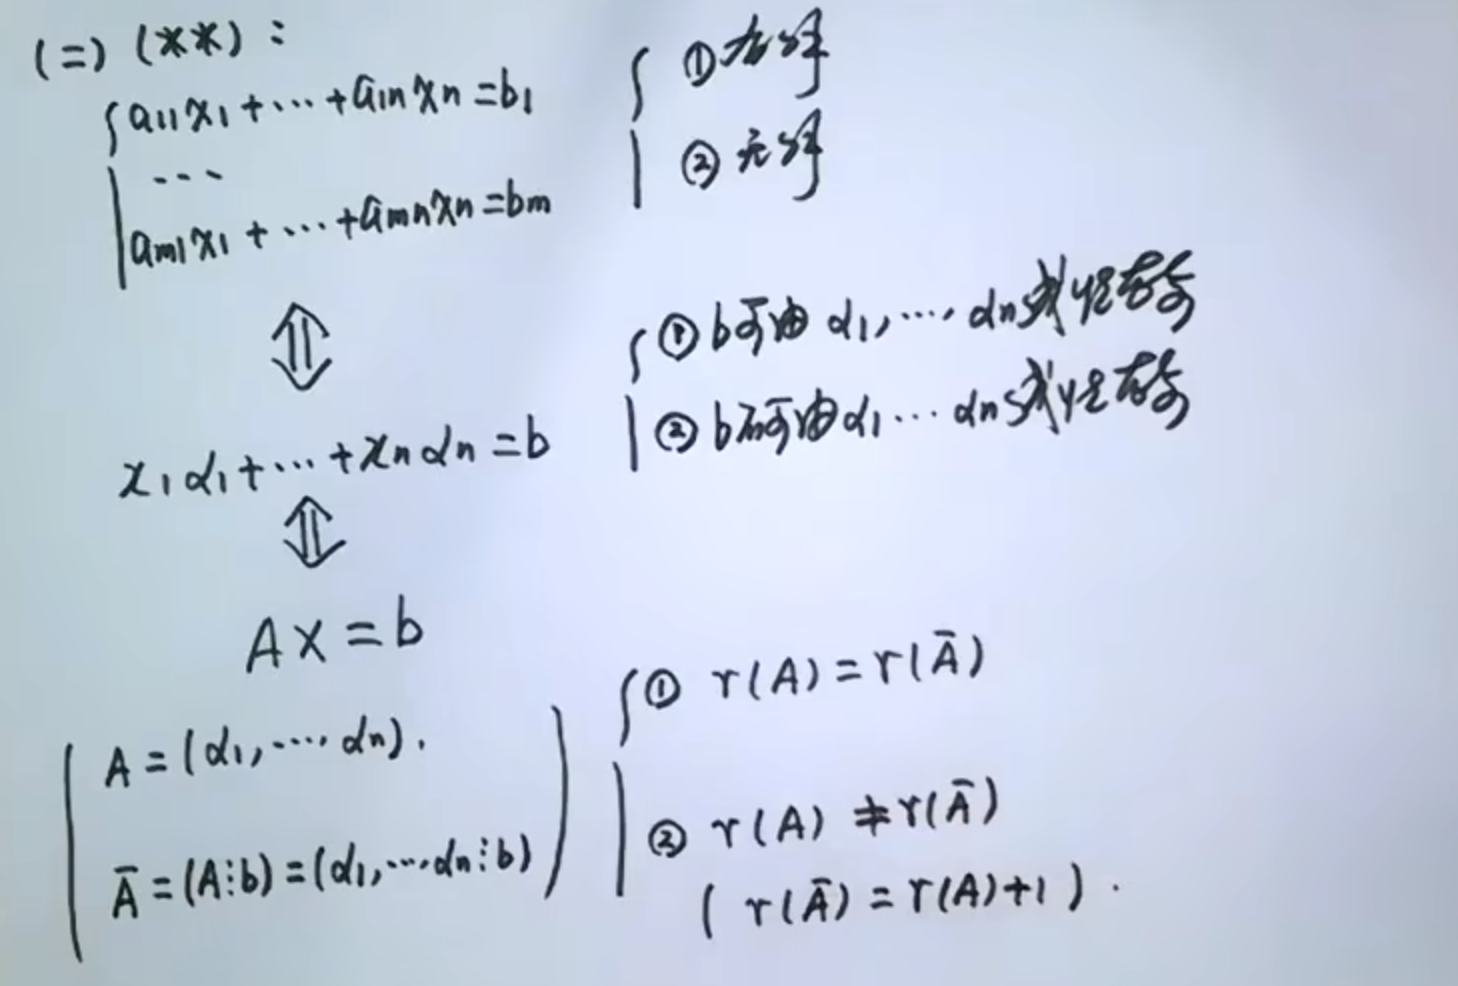 (二) (**):
{ a₁₁x₁+···+a₁ₙxₙ=b₁
···
aₘ₁x₁+···+aₘₙxₙ=bₘ
{ ① 有解
② 无解
⇕
x₁α₁+···+xₙαₙ=b
{ ① b可由α₁,···,αₙ线性表示
② b不可由α₁···αₙ线性表示
⇕
AX=b
( A=(α₁,···αₙ).
Ā=(A⋮b)=(α₁,···αₙ⋮b) )
{ ① r(A)=r(Ā)
② r(A)≠r(Ā)
(r(Ā)=r(A)+1).